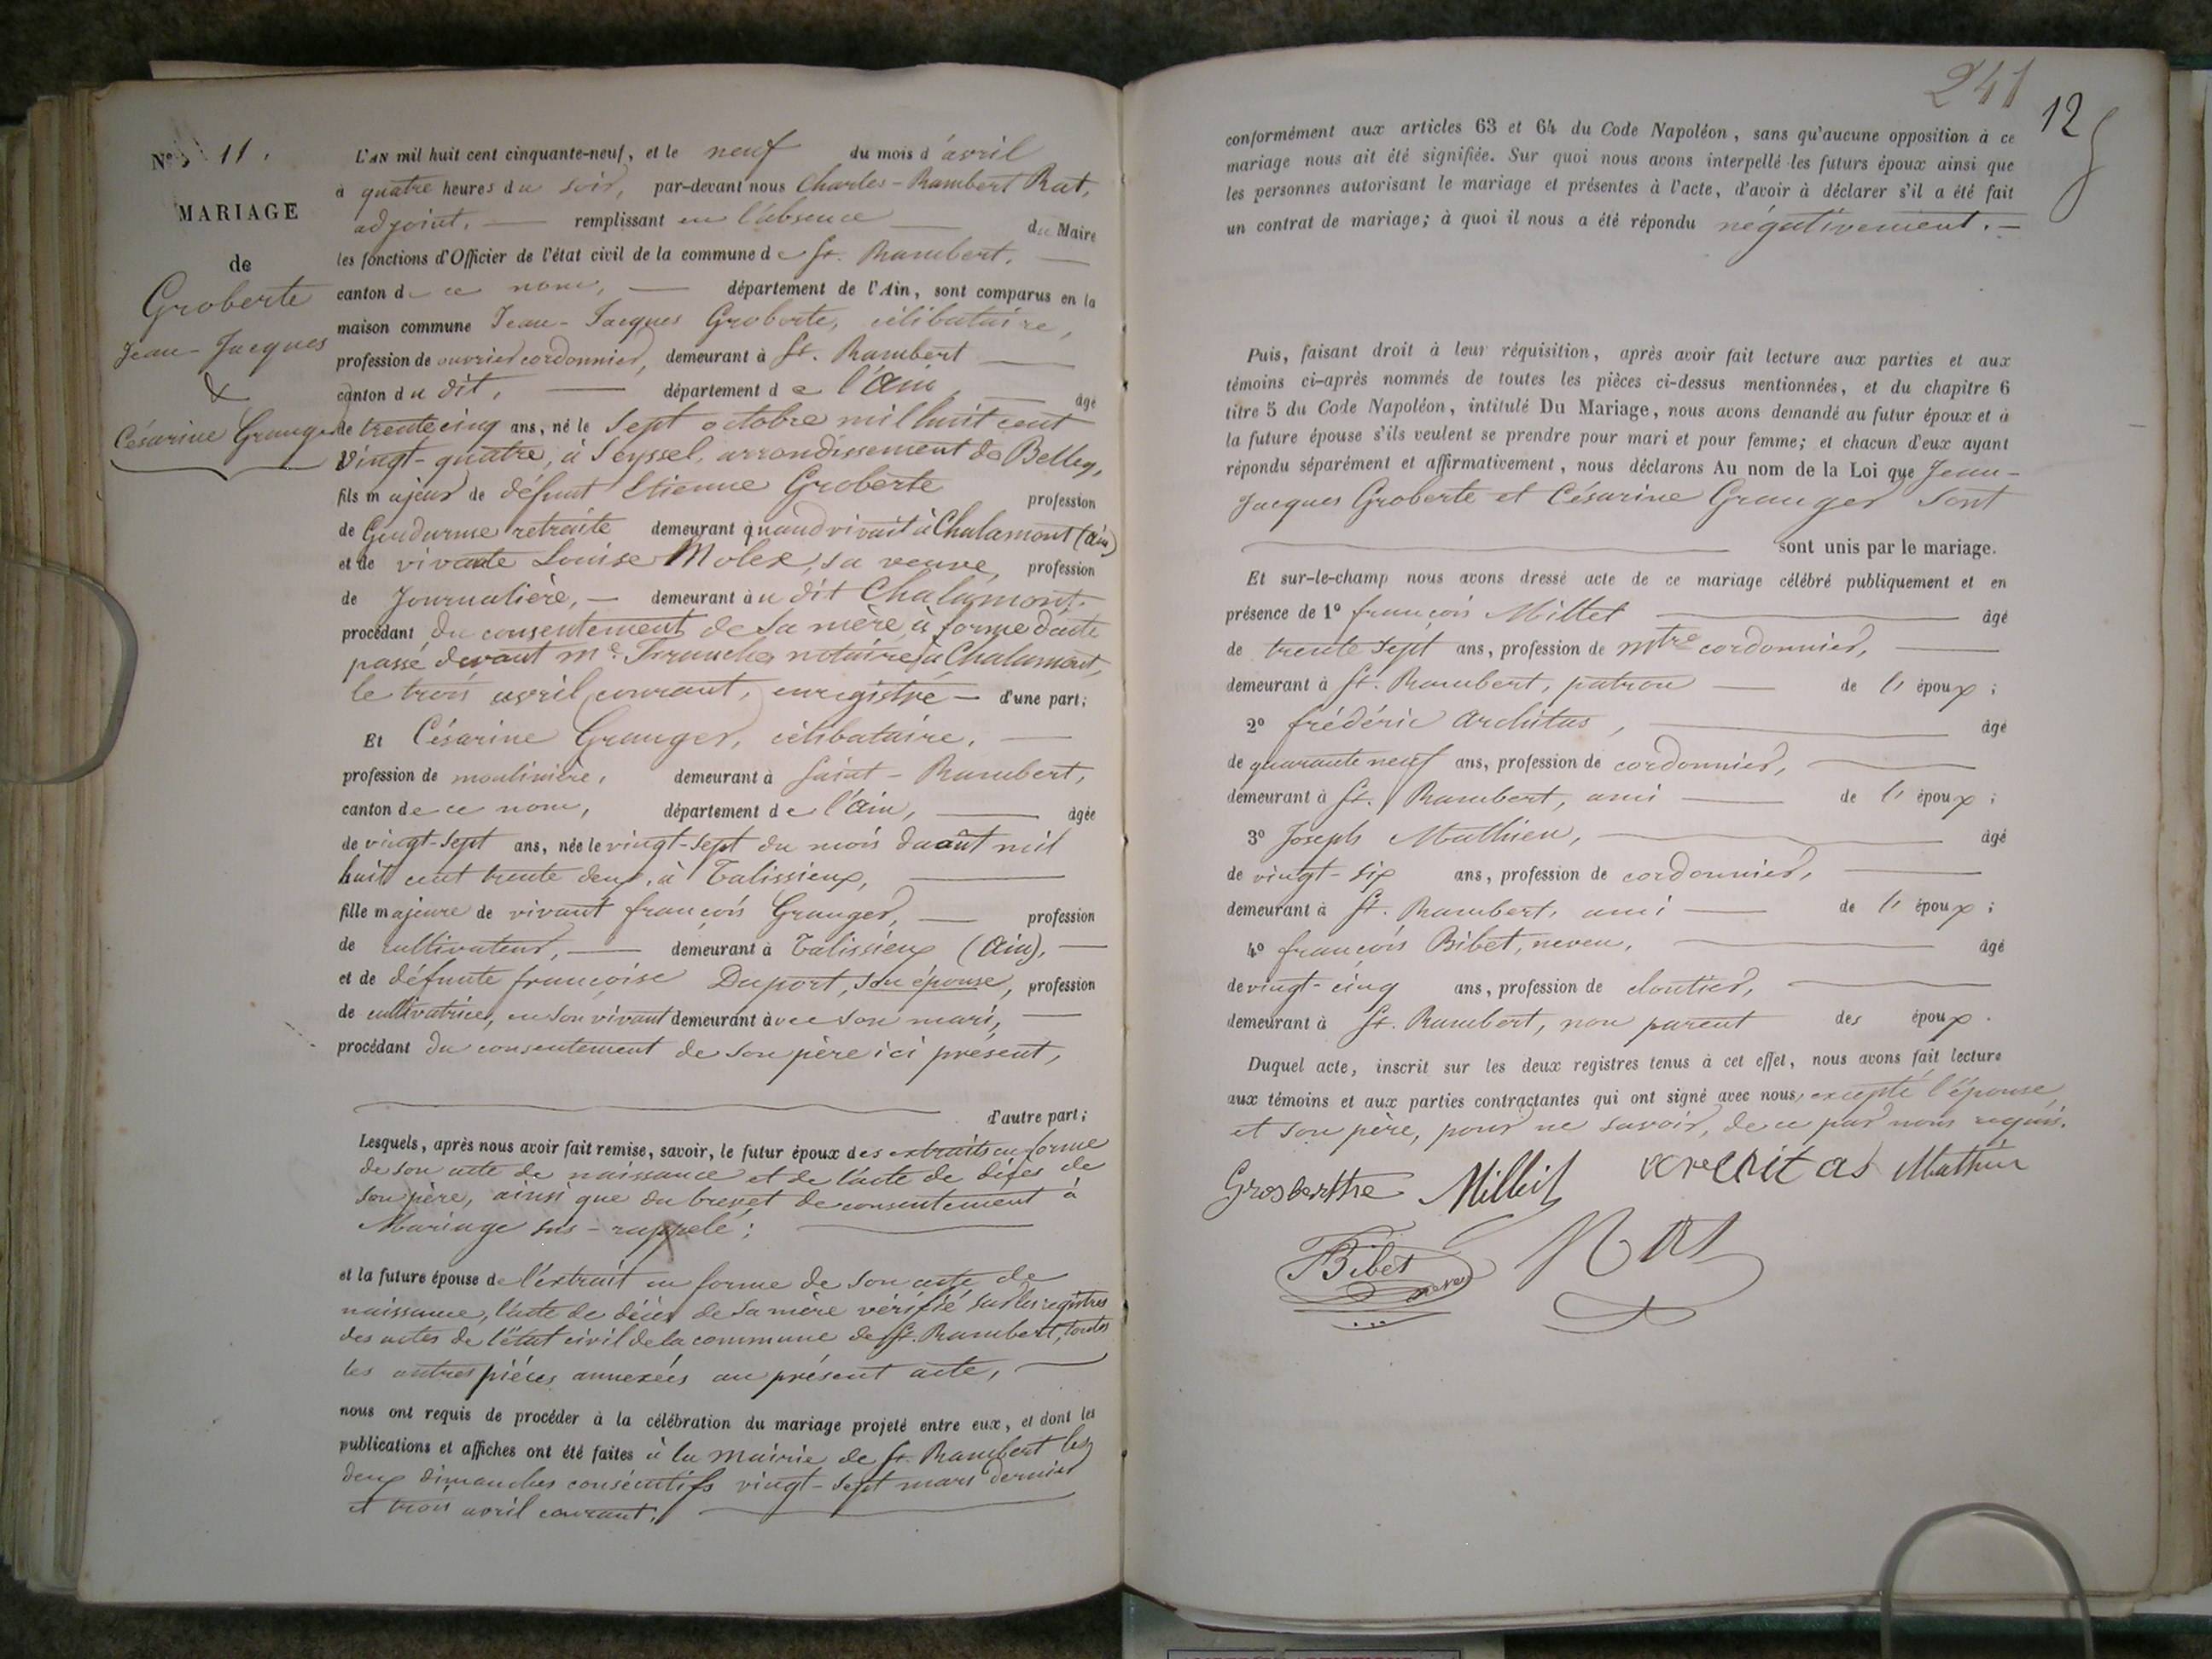 N° 11.
MARIAGE
de
Groberte
Jean-Jacques
&
Césarine Granger
L'AN mil huit cent cinquante-neuf, et le neuf du mois d'avril
à quatre heures du soir, par-devant nous Charles-Rambert Rat,
adjoint, remplissant en l'absence du Maire
les fonctions d'Officier de l'état civil de la commune de St. Rambert,
canton de ce nom, département de l'Ain, sont comparus en la
maison commune Jean-Jacques Groberte, célibataire,
profession de ouvrier cordonnier, demeurant à St. Rambert
canton du dit, département de l'Ain, âgé
de trente cinq ans, né le sept octobre mil huit cent
vingt-quatre, à Seyssel, arrondissement de Belley,
fils majeur de défunt Etienne Groberte profession
de Gendarme retraité demeurant quand vivait à Chalamont (Ain)
et de vivante Louise Molex, sa veuve, profession
de Journalière, demeurant au dit Chalamont.
procédant du consentement de sa mère à forme d'acte
passé devant Me. Franches notaire à Chalamont,
le trois avril courant, enregistré d'une part;
Et Césarine Granger, célibataire,
profession de moulinière, demeurant à Saint-Rambert,
canton de ce nom, département de l'Ain, âgée
de vingt-sept ans, née le vingt-sept du mois d'août mil
huit cent trente deux, à Talissieux,
fille majeure de vivant françois Granger, profession
de cultivateur, demeurant à Talissieux (Ain),
et de défunte françoise Duport, son épouse, profession
de cultivatrice, en son vivant demeurant avec son mari,
procédant du consentement de son père ici présent,
d'autre part;
Lesquels, après nous avoir fait remise, savoir, le futur époux des extraits en forme
de son acte de naissance et de l'acte de décès de
son père, ainsi que du brevet de consentement à
Mariage sus-rappelé;
et la future épouse de l'extrait en forme de son acte de
naissance, l'acte de décès de sa mère vérifié sur les registres
des actes de l'état civil de la commune de St. Rambert, toutes
les autres pièces annexées au présent acte,
nous ont requis de procéder à la célébration du mariage projeté entre eux, et dont les
publications et affiches ont été faites à la Mairie de St. Rambert les
deux dimanches consécutifs vingt-sept mars dernier
et trois avril courant.
241
12
conformément aux articles 63 et 64 du Code Napoléon, sans qu'aucune opposition à ce
mariage nous ait été signifiée. Sur quoi nous avons interpellé les futurs époux ainsi que
les personnes autorisant le mariage et présentes à l'acte, d'avoir à déclarer s'il a été fait
un contrat de mariage; à quoi il nous a été répondu négativement.
Puis, faisant droit à leur réquisition, après avoir fait lecture aux parties et aux
témoins ci-après nommés de toutes les pièces ci-dessus mentionnées, et du chapitre 6
titre 5 du Code Napoléon, intitulé Du Mariage, nous avons demandé au futur époux et à
la future épouse s'ils veulent se prendre pour mari et pour femme; et chacun d'eux ayant
répondu séparément et affirmativement, nous déclarons Au nom de la Loi que Jean-
Jacques Groberte et Césarine Granger sont
sont unis par le mariage.
Et sur-le-champ nous avons dressé acte de ce mariage célébré publiquement et en
présence de 1° françois Millet âgé
de trente sept ans, profession de mtre cordonnier,
demeurant à St. Rambert, patron de l'époux;
2° frédéric Architas, âgé
de quarante neuf ans, profession de cordonnier,
demeurant à St. Rambert, ami de l'époux;
3° Joseph Mathieu, âgé
de vingt-six ans, profession de cordonnier,
demeurant à St. Rambert, ami de l'époux;
4° françois Bibet, neveu, âgé
de vingt-cinq ans, profession de cloutier,
demeurant à St. Rambert, non parent des époux.
Duquel acte, inscrit sur les deux registres tenus à cet effet, nous avons fait lecture
aux témoins et aux parties contractantes qui ont signé avec nous, excepté l'épouse
et son père, pour ne savoir, de ce par nous requis.
Grosberthe Milliet Mathieu
Bibet neveu Rat